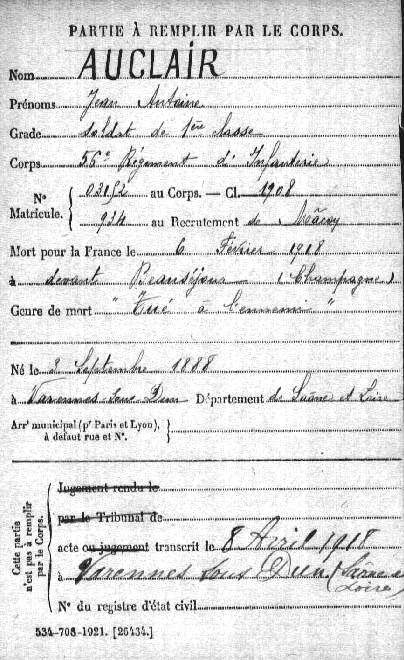 PARTIE À REMPLIR PAR LE CORPS.
Nom AUCLAIR
Prénoms Jean Antoine
Grade soldat de 1ère classe
Corps 56e Régiment d'Infanterie
N° Matricule. { 03152 au Corps. — Cl. 1908
934 au Recrutement de Mâcon
Mort pour la France le 6 Février 1918
à devant Beauséjour (Champagne)
Genre de mort "Tué à l'ennemi"
Né le 2 Septembre 1888
à Varennes sous Dun Département de Saône et Loire
Arrt municipal (pr Paris et Lyon), à défaut rue et N°. }
Cette partie n'est pas à remplir par le Corps. {
Jugement rendu le
par le Tribunal de
acte ou jugement transcrit le 8 Avril 1918
à Varennes sous Dun (Saône &
Loire)
N° du registre d'état civil
534-708-1921. [26434.]